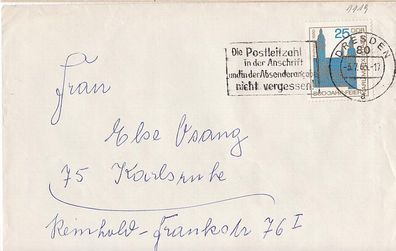 1119
Die Postleitzahl
in der Anschrift
und in der Absenderangabe
nicht vergessen
DRESDEN
80
-17
25 DDR
800 JAHR-FEIER
Frau
Else Osang
75 Karlsruhe
Reinhold-Frankstr 76 I